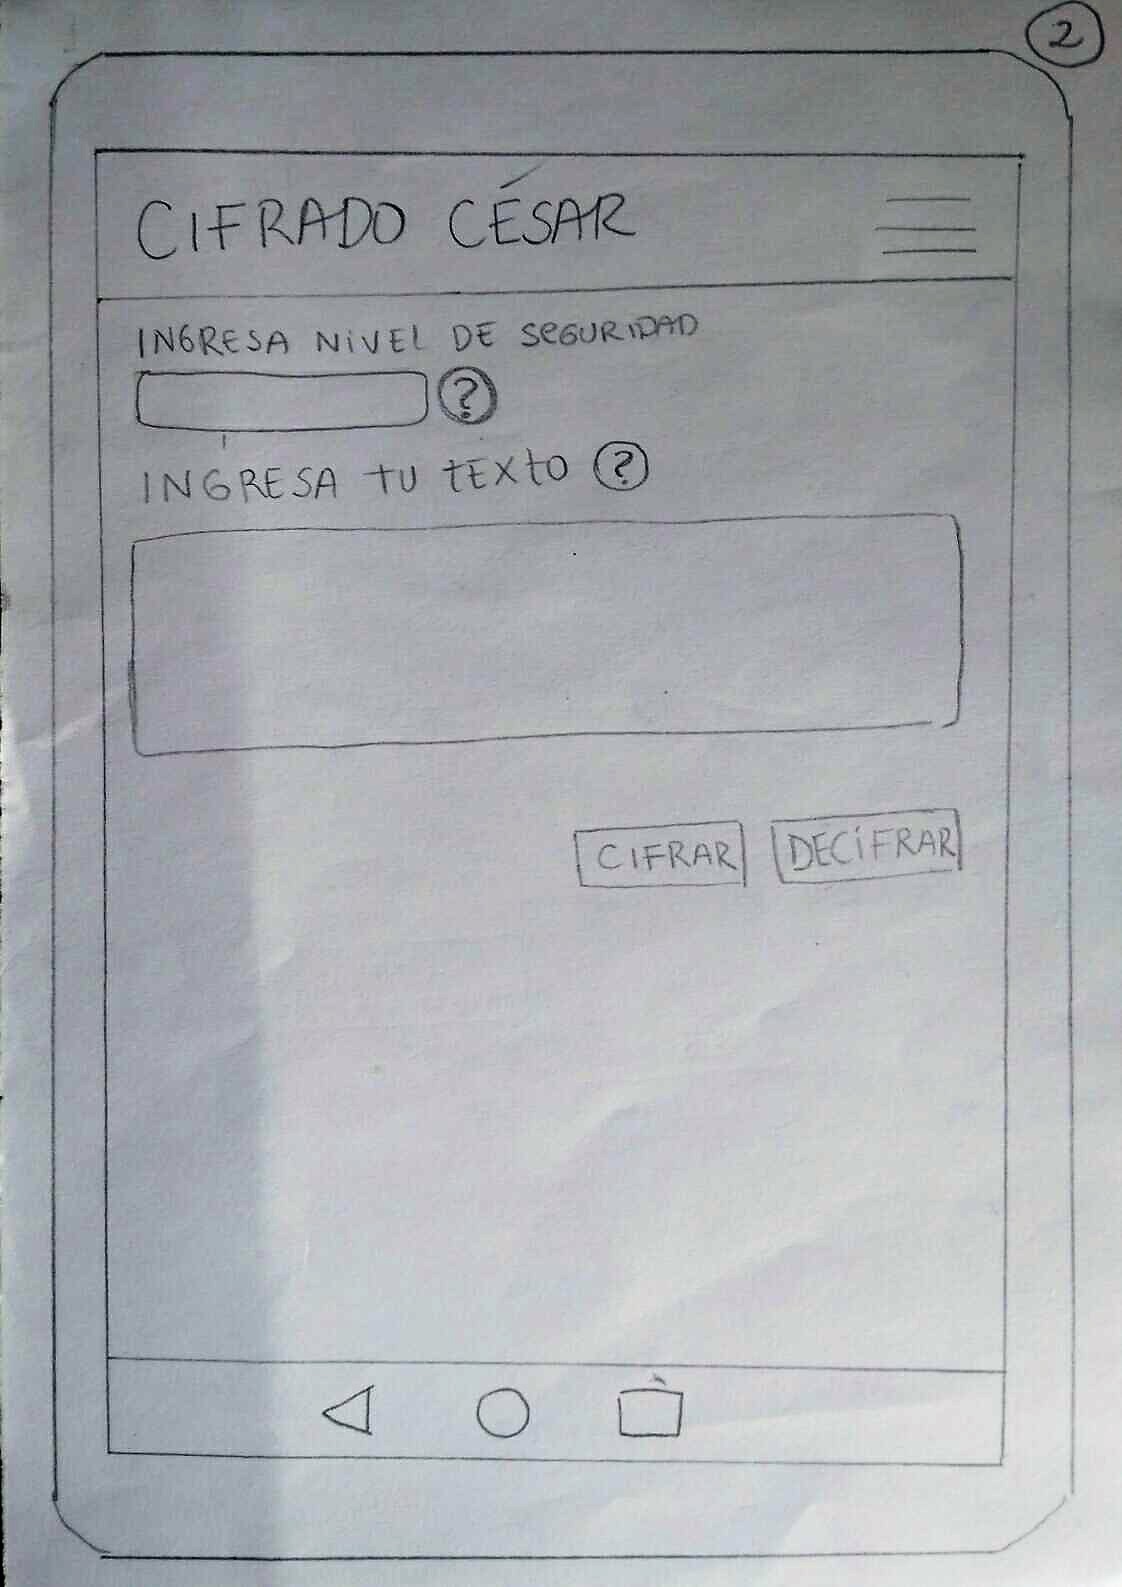 2
CIFRADO CÉSAR
INGRESA NIVEL DE SEGURIDAD
?
INGRESA TU TEXTO ?
CIFRAR DECIFRAR